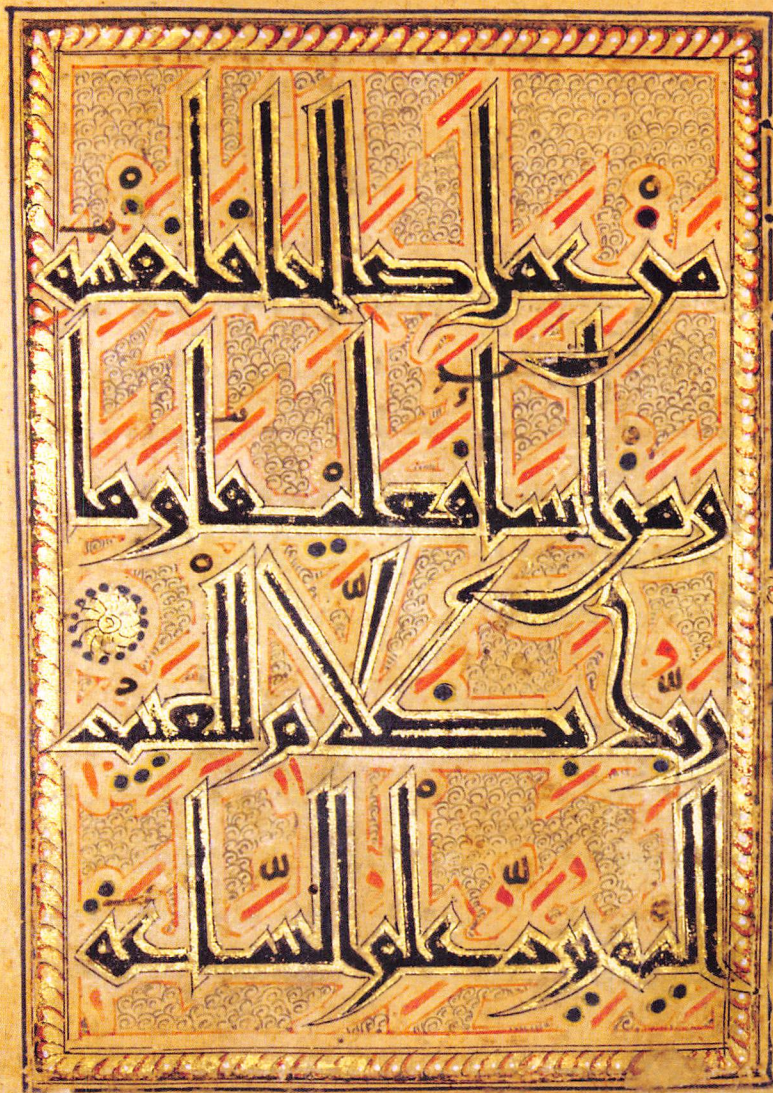 من عمل صالحا فلنفسه
ومن اسا فعليها وما
ربّك بظلّام للعبيد
اليه يردّ علم السّاعة